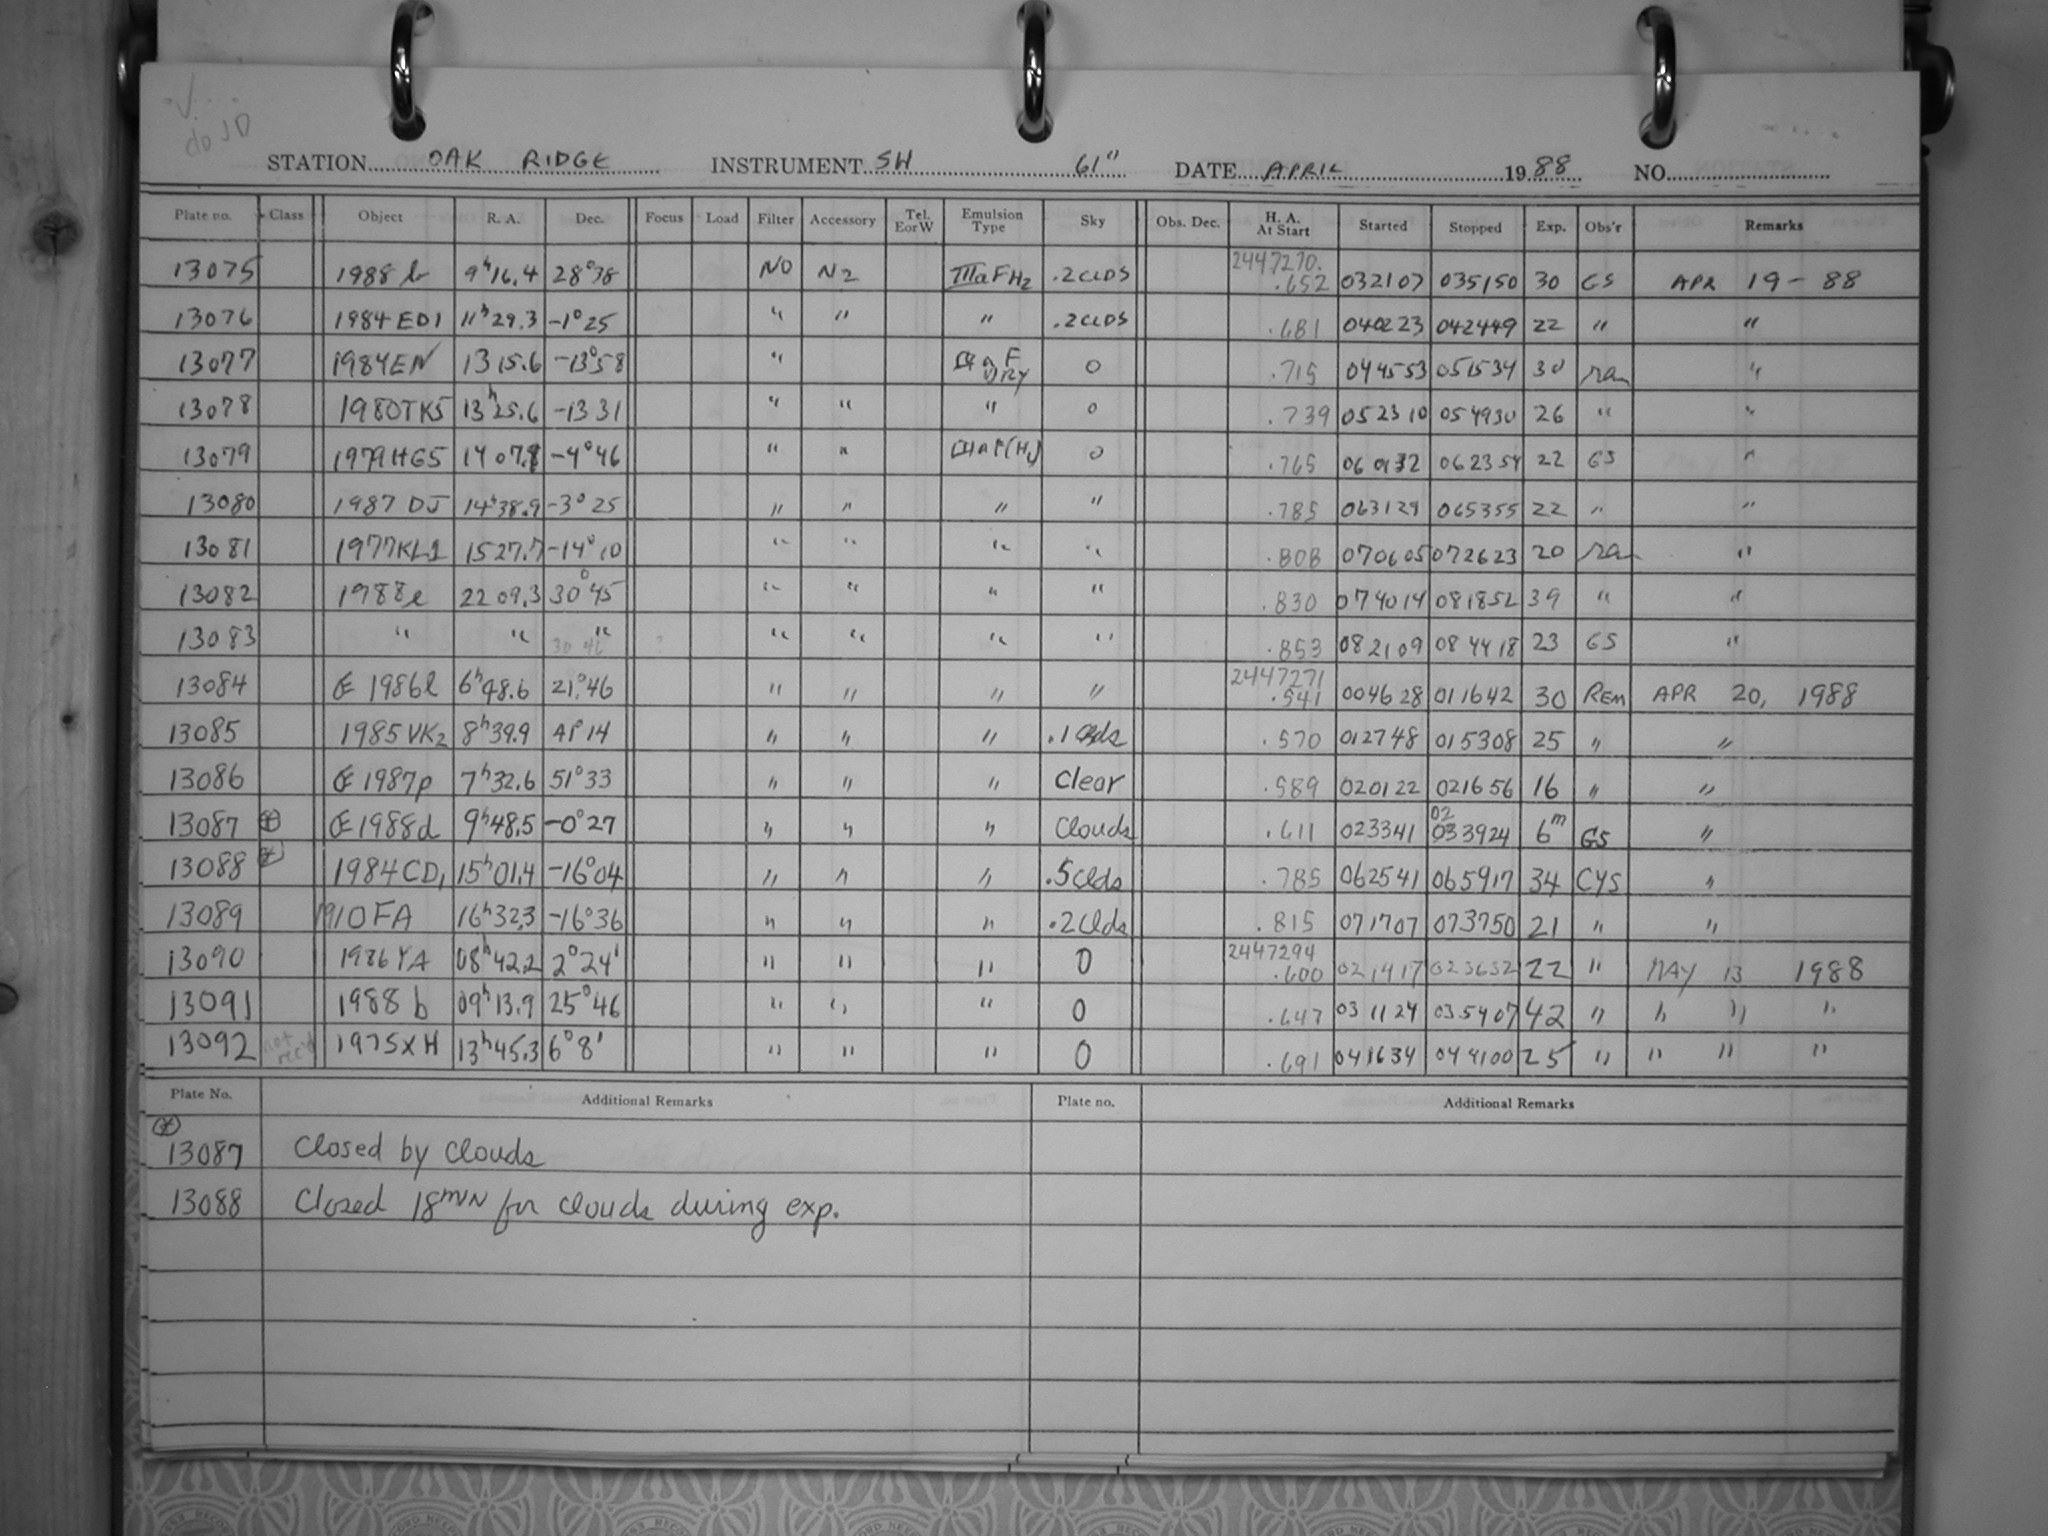 do JD
STATION OAK RIDGE INSTRUMENT SH 61" DATE APRIL 1988 NO.
Plate no. Class Object R. A. Dec. Focus Load Filter Accessory Tel. E or W Emulsion Type Sky Obs. Dec. H. A. At Start Started Stopped Exp. Obs'r Remarks
13075 1988 b 9h16.4 28°38 NO N2 IIIaF H2 .2 CLDS 2447270. .652 032107 035150 30 GS APR 19-88
13076 1984 ED1 11h29.3 -1°25 " " " .2 CLDS .681 040223 042449 22 " "
13077 1984EN 1315.6 -13°58 " IIIaF DRY 0 .715 044553 051534 30 "
13078 1980TK5 13h25.6 -13 31 " " " 0 .739 052310 054930 26 " "
13079 1979HG5 1407.8 -4°46 " " IIIaF(H2) 0 .765 060132 062354 22 GS "
13080 1987 DJ 14h38.9 -3°25 " " " " .785 063129 065355 22 " "
13081 1977KL1 1527.7 -14°10 " " " " .808 070605 072623 20 "
13082 1988e 2209.3 30°45 " " " " .830 074014 081852 39 " "
13083 " " " " " " " .853 082109 084418 23 GS "
13084 1986l 6h48.6 21°46 " " " " 2447271 .541 004628 011642 30 REM APR 20, 1988
13085 1985VK2 8h39.9 AP14 " " " .1 Clds .570 012748 015308 25 " "
13086 1987p 7h32.6 51°33 " " " Clear .589 020122 021656 16 " "
13087 1988d 9h48.5 -0°27 " " " Clouds .611 023341 02 033924 6m GS "
13088 1984CD1 15h01.4 -16°04 " " " .5 Clds .785 062541 065917 34 CYS "
13089 1910FA 16h32.3 -16°36 " " " .2 Clds .815 071707 073750 21 " "
13090 1986YA 08h42.2 2°24' " " " 0 2447294 .600 021417 023632 22 " MAY 13 1988
13091 1988 b 09h13.9 25°46 " " " 0 .647 031124 035407 42 " " " "
13092 not rec'd 1975XH 13h45.3 6°8' " " " 0 .691 041634 044100 25 " " " "
Plate No. Additional Remarks Plate no. Additional Remarks
13087 Closed by Clouds
13088 Closed 18min for clouds during exp.